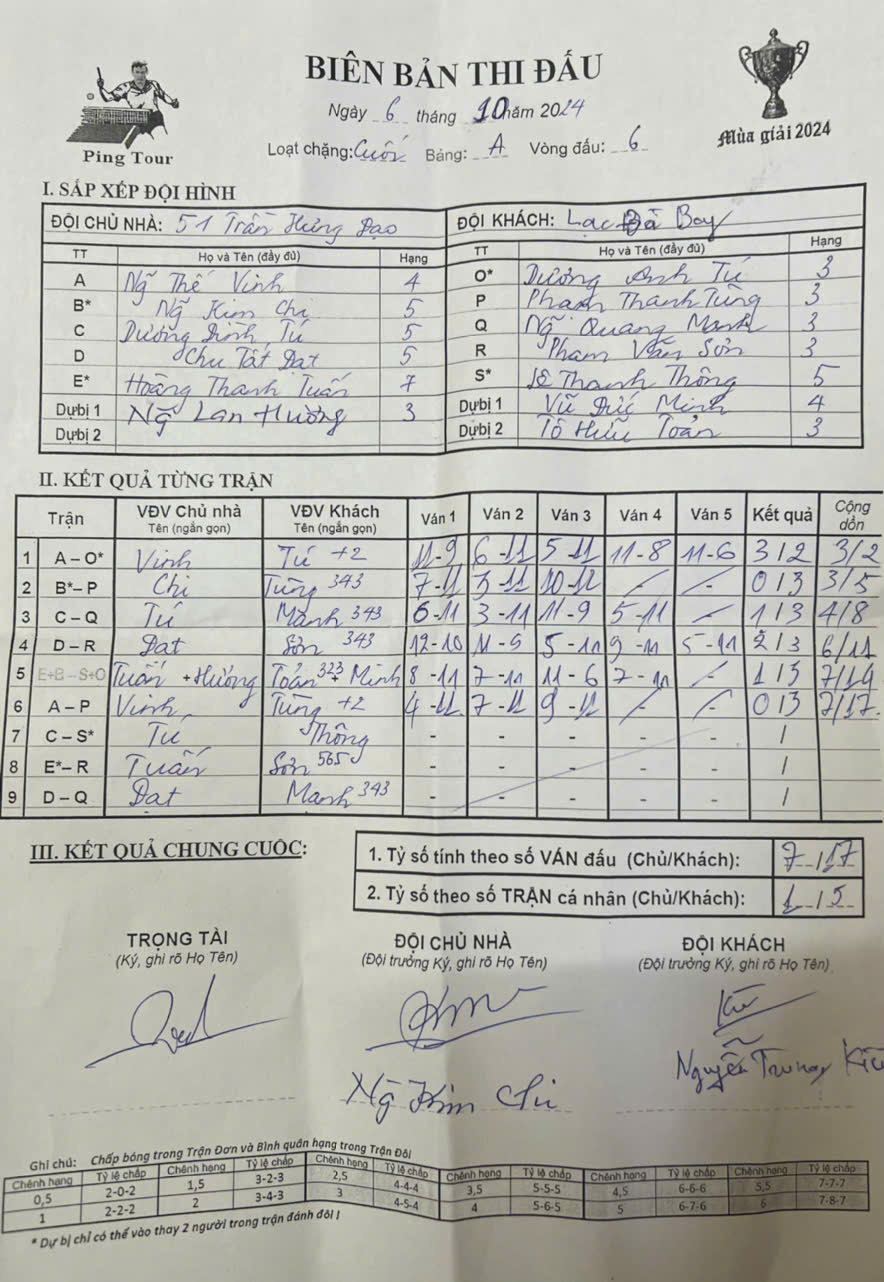 BIÊN BẢN THI ĐẤU
Ngày 6 tháng 10 năm 2024
Loạt chặng: Cuối Bảng: A Vòng đấu: 6
Ping Tour
Mùa giải 2024
I. SẮP XẾP ĐỘI HÌNH
ĐỘI CHỦ NHÀ: 51 Trần Hưng Đạo ĐỘI KHÁCH: Lạc Đà Bay
TT Họ và Tên (đầy đủ) Hạng TT Họ và Tên (đầy đủ) Hạng
A Ng̃ Thế Vinh 4 O* Dương Anh Tú 3
B* Ng̃ Kim Chi 5 P Phạm Thanh Tùng 3
C Dương Đình Tú 5 Q Ng̃ Quang Mạnh 3
D Chu Tất Đạt 5 R Phạm Văn Sơn 3
E* Hoàng Thanh Tuấn 7 S* Lê Thanh Thông 5
Dự bị 1 Ng̃ Lan Hường 3 Dự bị 1 Vũ Đức Minh 4
Dự bị 2 Dự bị 2 Tô Hữu Toản 3
II. KẾT QUẢ TỪNG TRẬN
Trận VĐV Chủ nhà Tên (ngắn gọn) VĐV Khách Tên (ngắn gọn) Ván 1 Ván 2 Ván 3 Ván 4 Ván 5 Kết quả Cộng dồn
1 A – O* Vinh Tú +2 11-9 6-11 5-11 11-8 11-6 3/2 3/2
2 B* – P Chi Tùng 343 7-11 3-11 10-12 - - 0/3 3/5
3 C – Q Tú Mạnh 343 6-11 3-11 11-9 5-11 - 1/3 4/8
4 D – R Đạt Sơn 343 12-10 11-9 5-11 9-11 5-11 2/3 6/11
5 E+B – S+O Tuấn + Hường Toản 323 + Minh 8-11 7-11 11-6 7-11 - 1/3 7/14
6 A – P Vinh Tùng +2 4-11 7-11 9-11 - - 0/3 7/17
7 C – S* Tú Thông - - - - - /
8 E* – R Tuấn Sơn 565 - - - - - /
9 D – Q Đạt Mạnh 343 - - - - - /
III. KẾT QUẢ CHUNG CUỘC:
1. Tỷ số tính theo số VÁN đấu (Chủ/Khách): 7/17
2. Tỷ số theo số TRẬN cá nhân (Chủ/Khách): 1/5
TRỌNG TÀI ĐỘI CHỦ NHÀ ĐỘI KHÁCH
(Ký, ghi rõ Họ Tên) (Đội trưởng Ký, ghi rõ Họ Tên) (Đội trưởng Ký, ghi rõ Họ Tên)
Ng̃ Kim Chi Nguyễn Trung
Ghi chú: Chấp bóng trong Trận Đơn và Bình quân hạng trong Trận Đôi
Chênh hạng Tỷ lệ chấp Chênh hạng Tỷ lệ chấp Chênh hạng Tỷ lệ chấp Chênh hạng Tỷ lệ chấp Chênh hạng Tỷ lệ chấp Chênh hạng Tỷ lệ chấp
0,5 2-0-2 1,5 3-2-3 2,5 4-4-4 3,5 5-5-5 4,5 6-6-6 5,5 7-7-7
1 2-2-2 2 3-4-3 3 4-5-4 4 5-6-5 5 6-7-6 6 7-8-7
* Dự bị chỉ có thể vào thay 2 người trong trận đánh đôi !